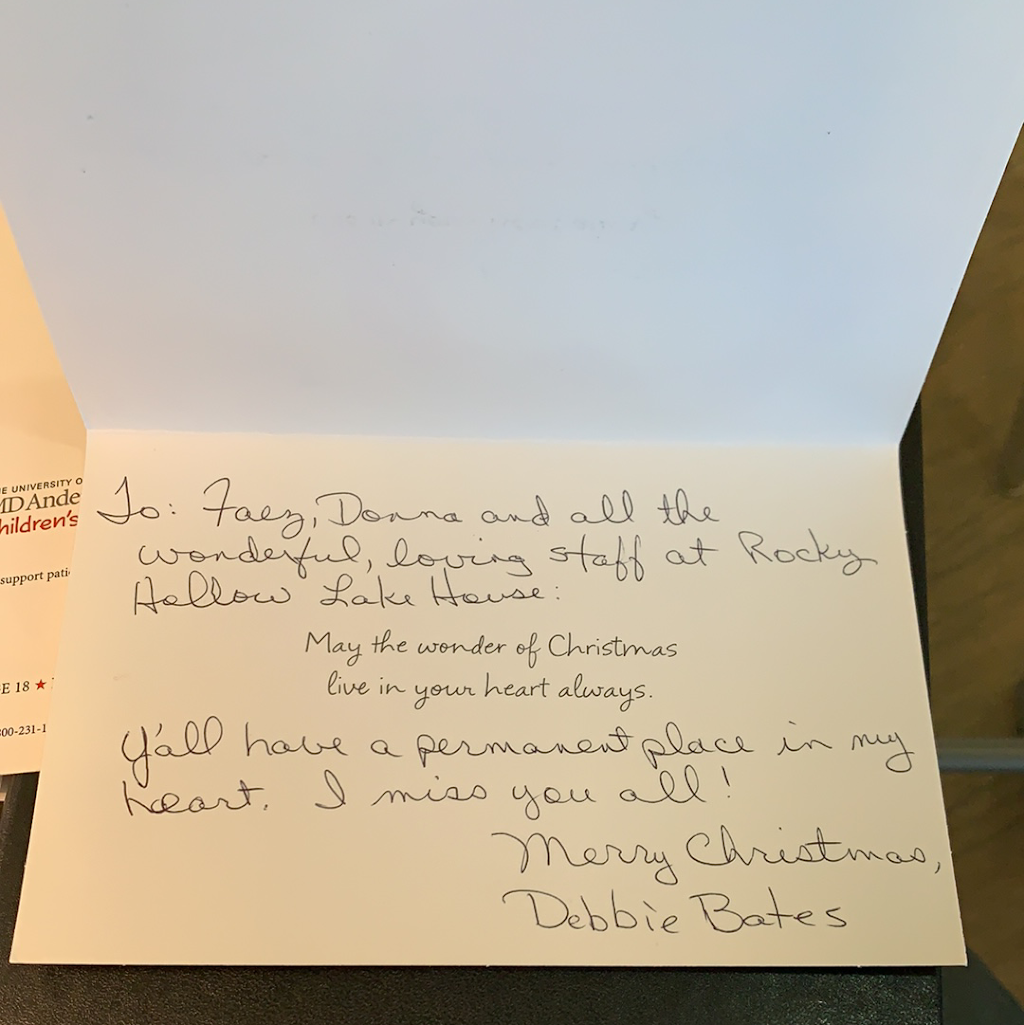 To: Faez, Donna and all the
wonderful, loving staff at Rocky
Hollow Lake House:
May the wonder of Christmas
live in your heart always.
Y'all have a permanent place in my
heart. I miss you all!
Merry Christmas,
Debbie Bates
E UNIVERSITY O
MD Ande
hildren's
support pati
E 18 ★
00-231-1